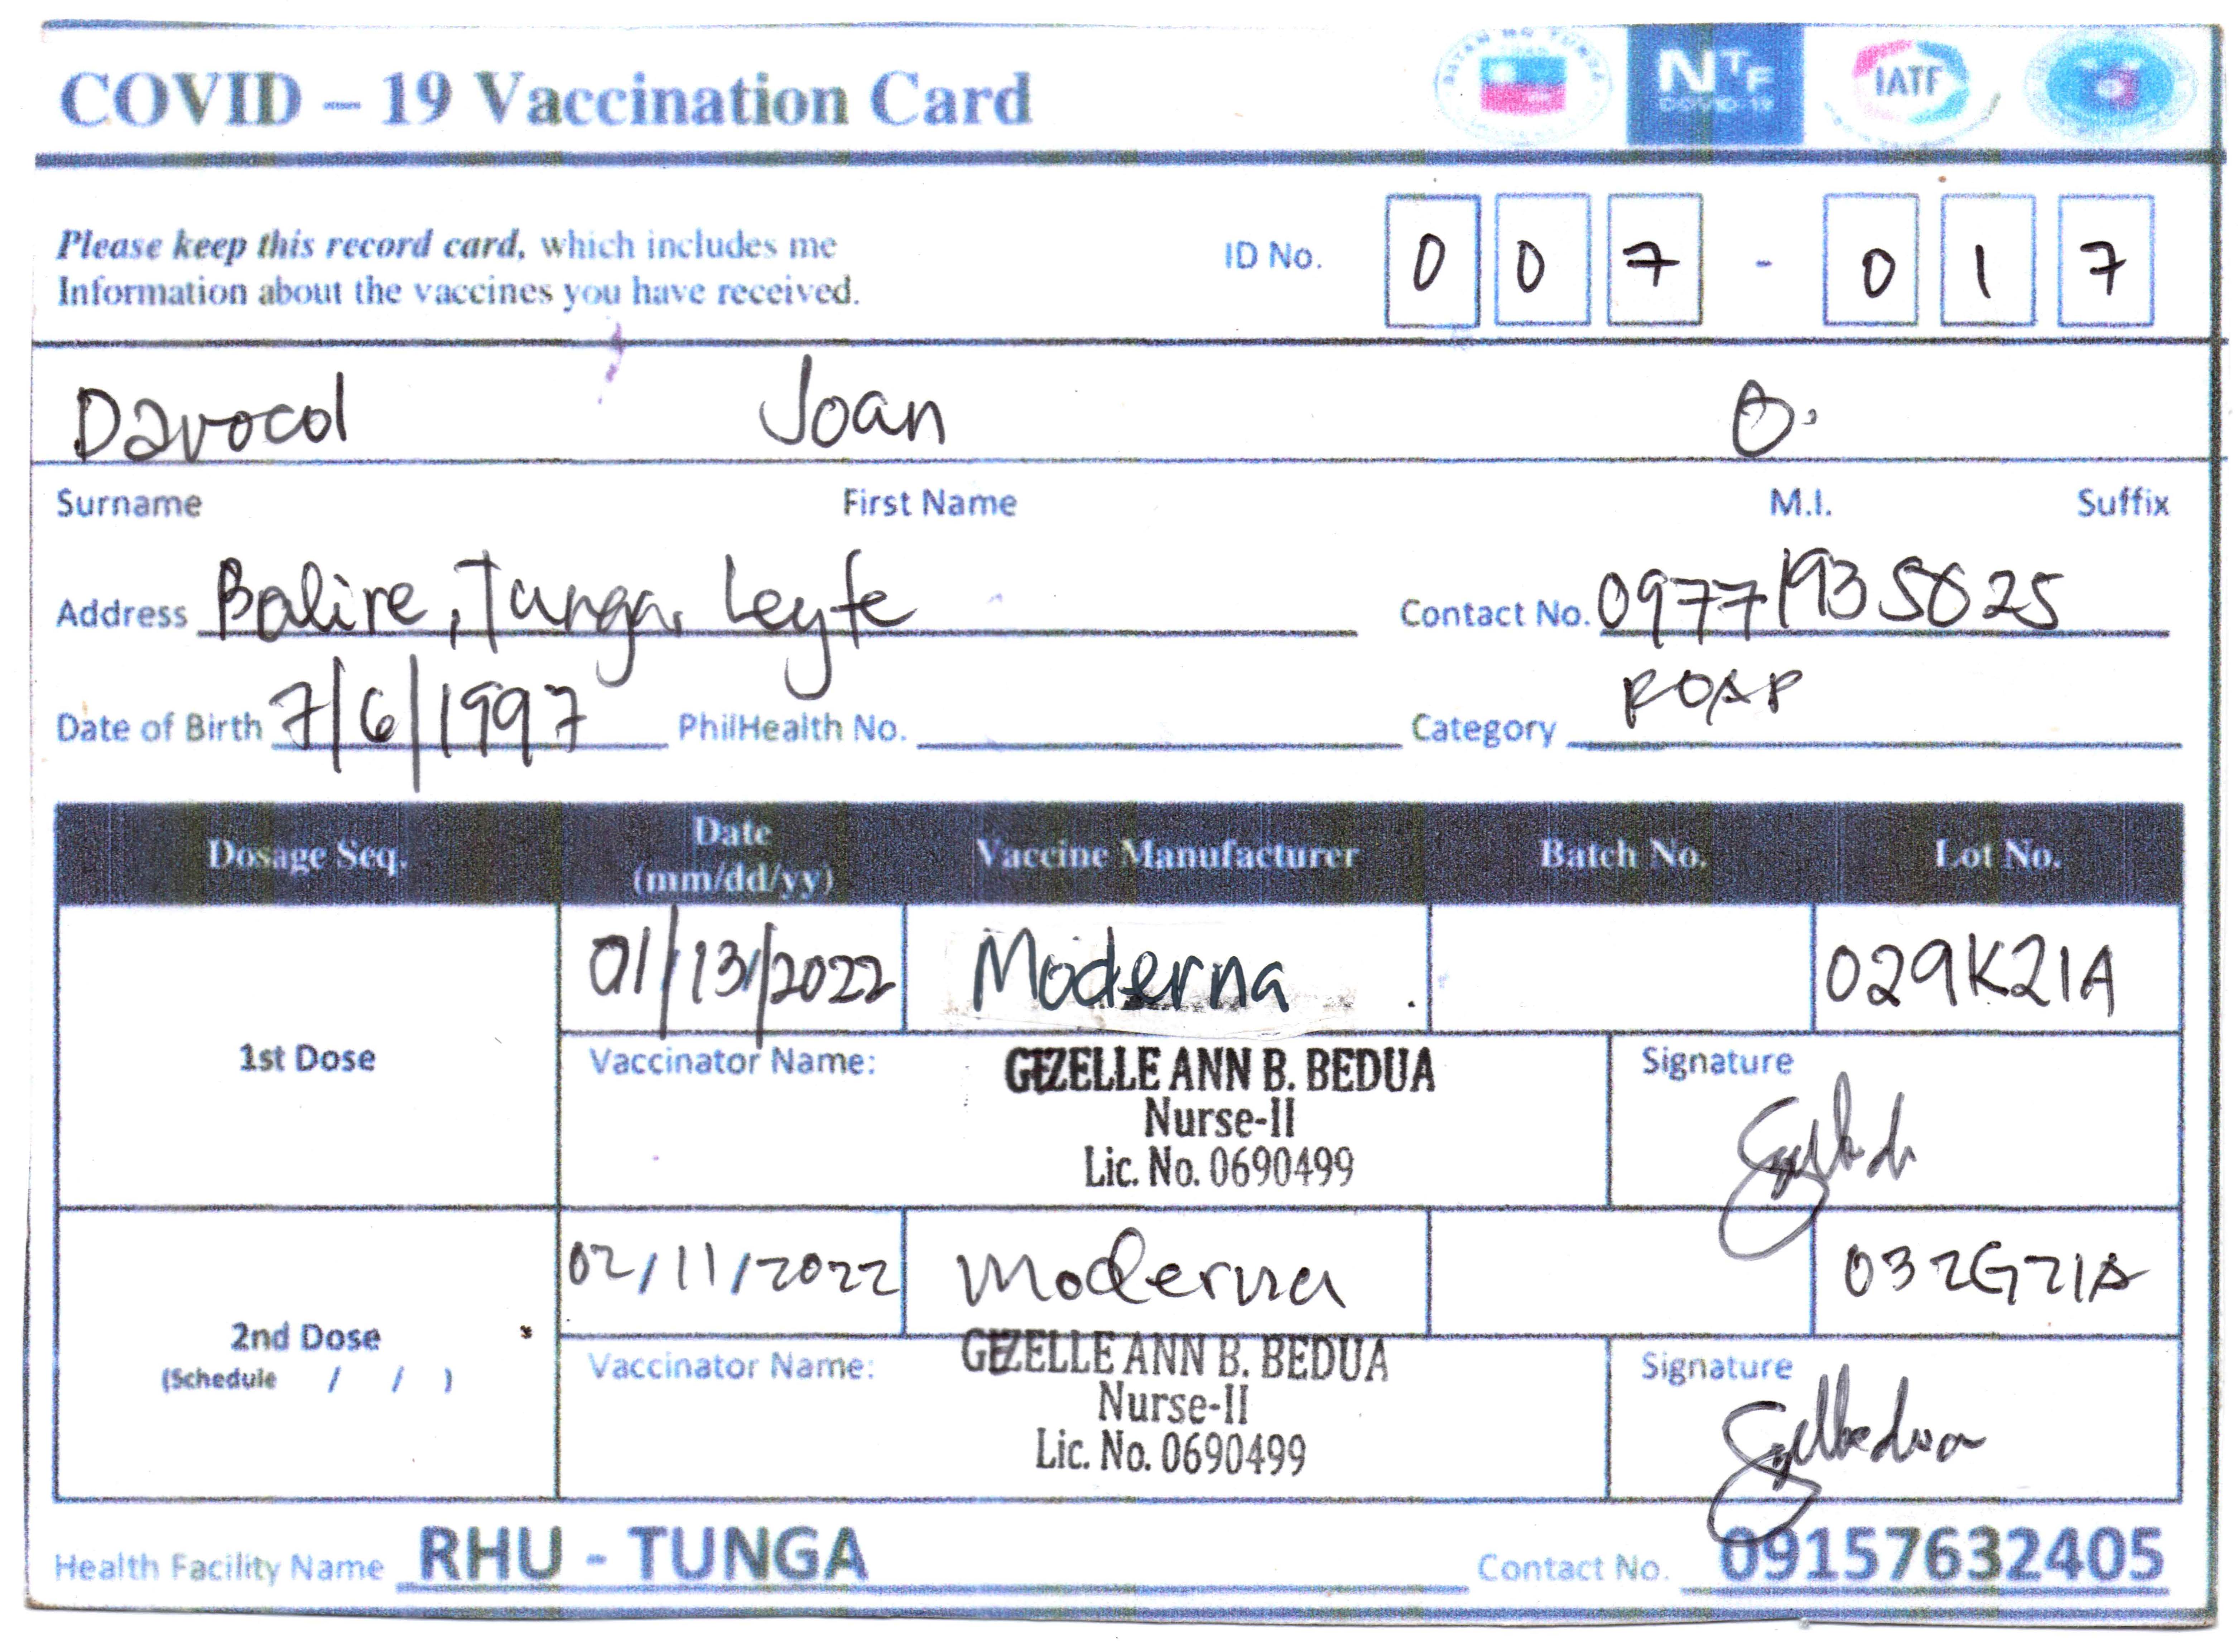 COVID – 19 Vaccination Card
NTF
COVID-19
IATF
Please keep this record card, which includes me
Information about the vaccines you have received.
ID No. 0 0 7 - 0 1 7
Davocol Joan O.
Surname First Name M.I. Suffix
Address Balire, Tunga, Leyte Contact No.
Date of Birth 7/6/1997 PhilHealth No. Category ROAP
Dosage Seq. Date (mm/dd/yy) Vaccine Manufacturer Batch No. Lot No.
1st Dose 01/13/2022 Moderna 029K21A
Vaccinator Name: GIZELLE ANN B. BEDUA Signature
Nurse-II
Lic. No. 0690499
2nd Dose 02/11/2022 Moderna 032G21A
(Schedule / / )
Vaccinator Name: GIZELLE ANN B. BEDUA Signature
Nurse-II
Lic. No. 0690499
Health Facility Name RHU - TUNGA Contact No. 09157632405